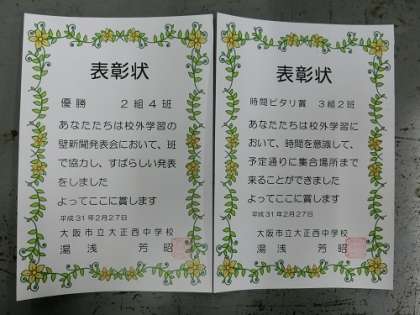 表彰状
優勝 2組4班
あなたたちは校外学習の
壁新聞発表会において、班
で協力し、すばらしい発表
をしました
よってここに賞します
平成31年2月27日
大阪市立大正西中学校
湯浅 芳昭
表彰状
時間ピタリ賞 3組2班
あなたたちは校外学習に
おいて、時間を意識して、
予定通りに集合場所まで
来ることができました
よってここに賞します
平成31年2月27日
大阪市立大正西中学校
湯浅 芳昭